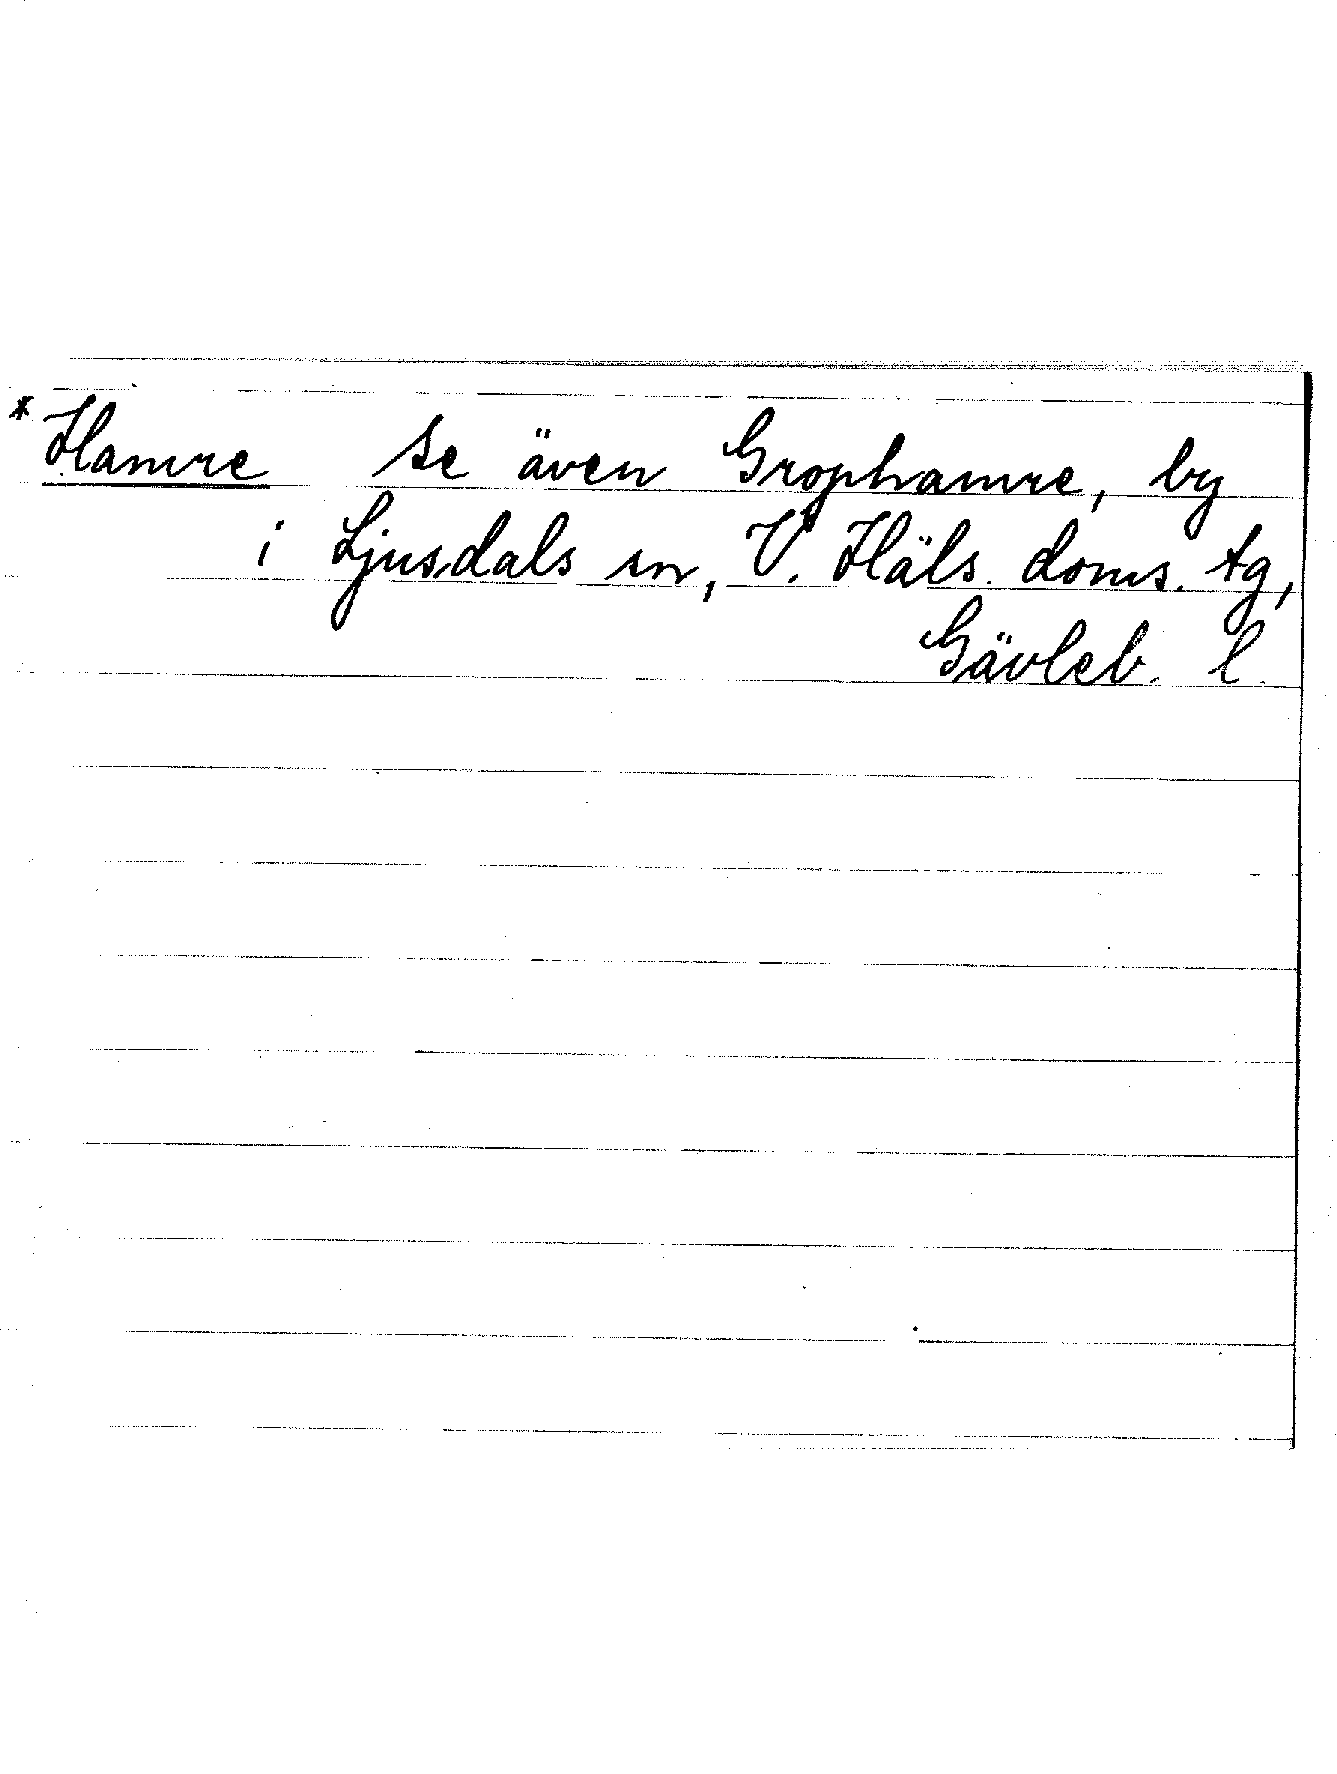 * Hamre se även Grophamre, by
i Ljusdals sn, V. Häls. doms. tg,
Gävleb. l.